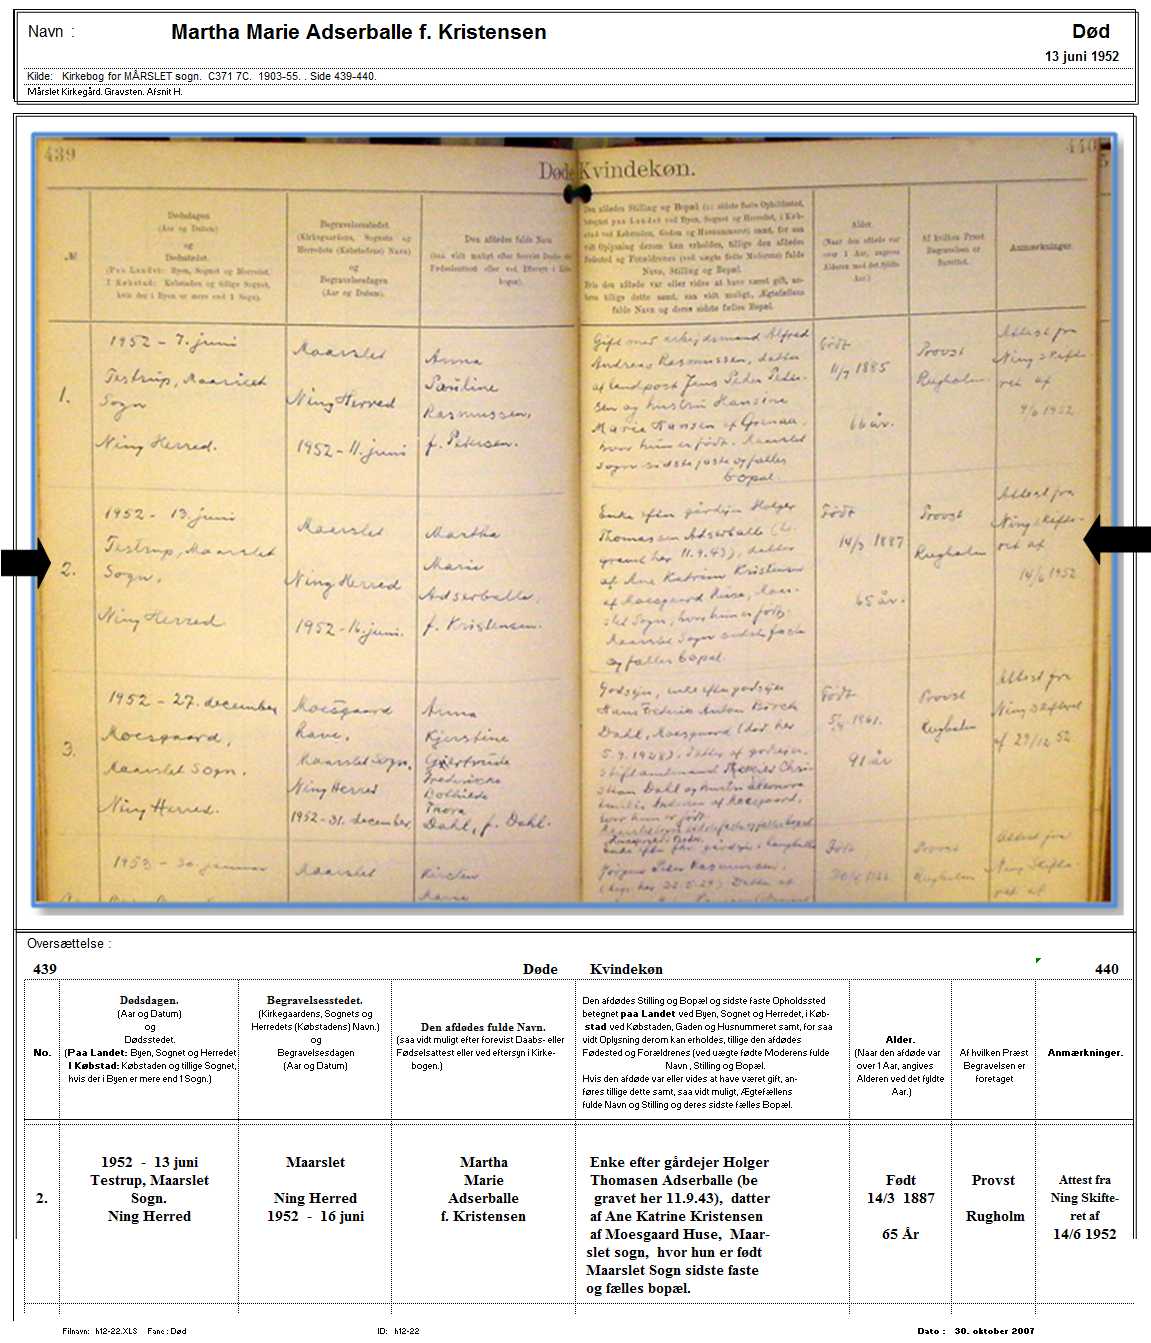 Navn :
Martha Marie Adserballe f. Kristensen
Død
13 juni 1952
Kilde: Kirkebog for MÅRSLET sogn. C371 7C. 1903-55. . Side 439-440.
Mårslet Kirkegård. Gravsten. Afsnit H.
439
Døde Kvindekøn.
440
№
Dødsdagen
(Aar og Datum)
og
Dødsstedet.
(Paa Landet: Byen, Sognet og Herredet.
I Købstad: Købstaden og tillige Sognet,
hvis der i Byen er mere end 1 Sogn).
Begravelsesstedet.
(Kirkegaardens, Sognets og
Herredets (Købstadens) Navn)
og
Begravelsesdagen
(Aar og Datum).
Den afdødes fulde Navn
Alder.
Af hvilken Præst
Begravelsen er
forrettet.
Anmærkninger.
1.
1952 - 7. juni
Testrup, Maarslet
Sogn
Ning Herred.
Maarslet
Ning Herred
1952 - 11. juni
Anna
Pauline
Rasmussen,
f. Petersen.
Gift med arbejdsmand Alfred
Andreas Rasmussen, datter
af landpost Jens Peder Peder-
sen og hustru Hansine
Marie Hansen af Grenaa,
hvor hun er født. Maarslet
Sogn sidste faste og fælles
bopæl.
Født
11/7 1885
66 år.
Provst
Rugholm
Attest fra
Ning Skifte-
ret af
9/6 1952
2.
1952 - 13. juni
Testrup, Maarslet
Sogn,
Ning Herred
Maarslet
Ning Herred
1952-16. juni.
Martha
Marie
Adserballe,
f. Kristensen.
Enke efter gårdejer Holger
Thomasen Adserballe (be-
gravet her 11.9.43), datter
af Ane Katrine Kristensen
af Moesgaard Huse, Maar-
slet Sogn, hvor hun er født.
Maarslet Sogn sidste faste
og fælles bopæl.
Født
14/3 1887
65 år.
Provst
Rugholm
Attest fra
Ning Skifte-
ret af
14/6 1952
3.
1952 - 27. december
Moesgaard,
Maarslet Sogn.
Ning Herred.
Moesgaard
have,
Maarslet Sogn,
Ning Herred
1952-31. december
Anna
Kjerstine
Gjertrude
Frederikke
Bothilde
Thora
Dahl, f. Dahl.
Godsejer, enke efter godsejer
Hans Frederik Anton Borch
Dahl, Moesgaard (død her
Født
91 år
Provst
Rugholm
Attest fra
Ning Skifteret
af 29/12 52
1953 - 30. januar
Maarslet
Kirsten
Marie
Jørgens Peter Rasmussen.
Født
Provst
Rugholm
Attest fra
Ning Skifte-
ret af
Oversættelse :
439
Døde Kvindekøn
440
No.
Dødsdagen.
(Aar og Datum)
og
Dødsstedet.
(Paa Landet: Byen, Sognet og Herredet
I Købstad: Købstaden og tillige Sognet,
hvis der i Byen er mere end 1 Sogn.)
Begravelsesstedet.
(Kirkegaardens, Sognets og
Herredets (Købstadens) Navn.)
og
Begravelsesdagen
(Aar og Datum)
Den afdødes fulde Navn.
(saa vidt muligt efter forevist Daabs- eller
Fødselsattest eller ved eftersyn i Kirke-
bogen.)
Den afdødes Stilling og Bopæl og sidste faste Opholdssted
betegnet paa Landet ved Byen, Sognet og Herredet, i Køb-
stad ved Købstaden, Gaden og Husnummeret samt, for saa
vidt Oplysning derom kan erholdes, tillige den afdødes
Fødested og Forældrenes (ved uægte fødte Moderens fulde
Navn , Stilling og Bopæl.
Hvis den afdøde var eller vides at have været gift, an-
føres tillige dette samt, saa vidt muligt, Ægtefællens
fulde Navn og Stilling og deres sidste fælles Bopæl.
Alder.
(Naar den afdøde var
over 1 Aar, angives
Alderen ved det fyldte
Aar.)
Af hvilken Præst
Begravelsen er
foretaget
Anmærkninger.
2.
1952 - 13 juni
Testrup, Maarslet
Sogn.
Ning Herred
Maarslet
Ning Herred
1952 - 16 juni
Martha
Marie
Adserballe
f. Kristensen
Enke efter gårdejer Holger
Thomasen Adserballe (be
gravet her 11.9.43), datter
af Ane Katrine Kristensen
af Moesgaard Huse, Maar-
slet sogn, hvor hun er født
Maarslet Sogn sidste faste
og fælles bopæl.
Født
14/3 1887
65 År
Provst
Rugholm
Attest fra
Ning Skifte-
ret af
14/6 1952
Filnavn: h12-22.XLS Fane : Død
ID: h12-22
Dato : 30. oktober 2007